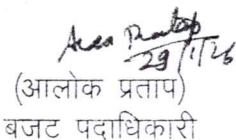 29/1/26
(आलोक प्रताप)
बजट पदाधिकारी